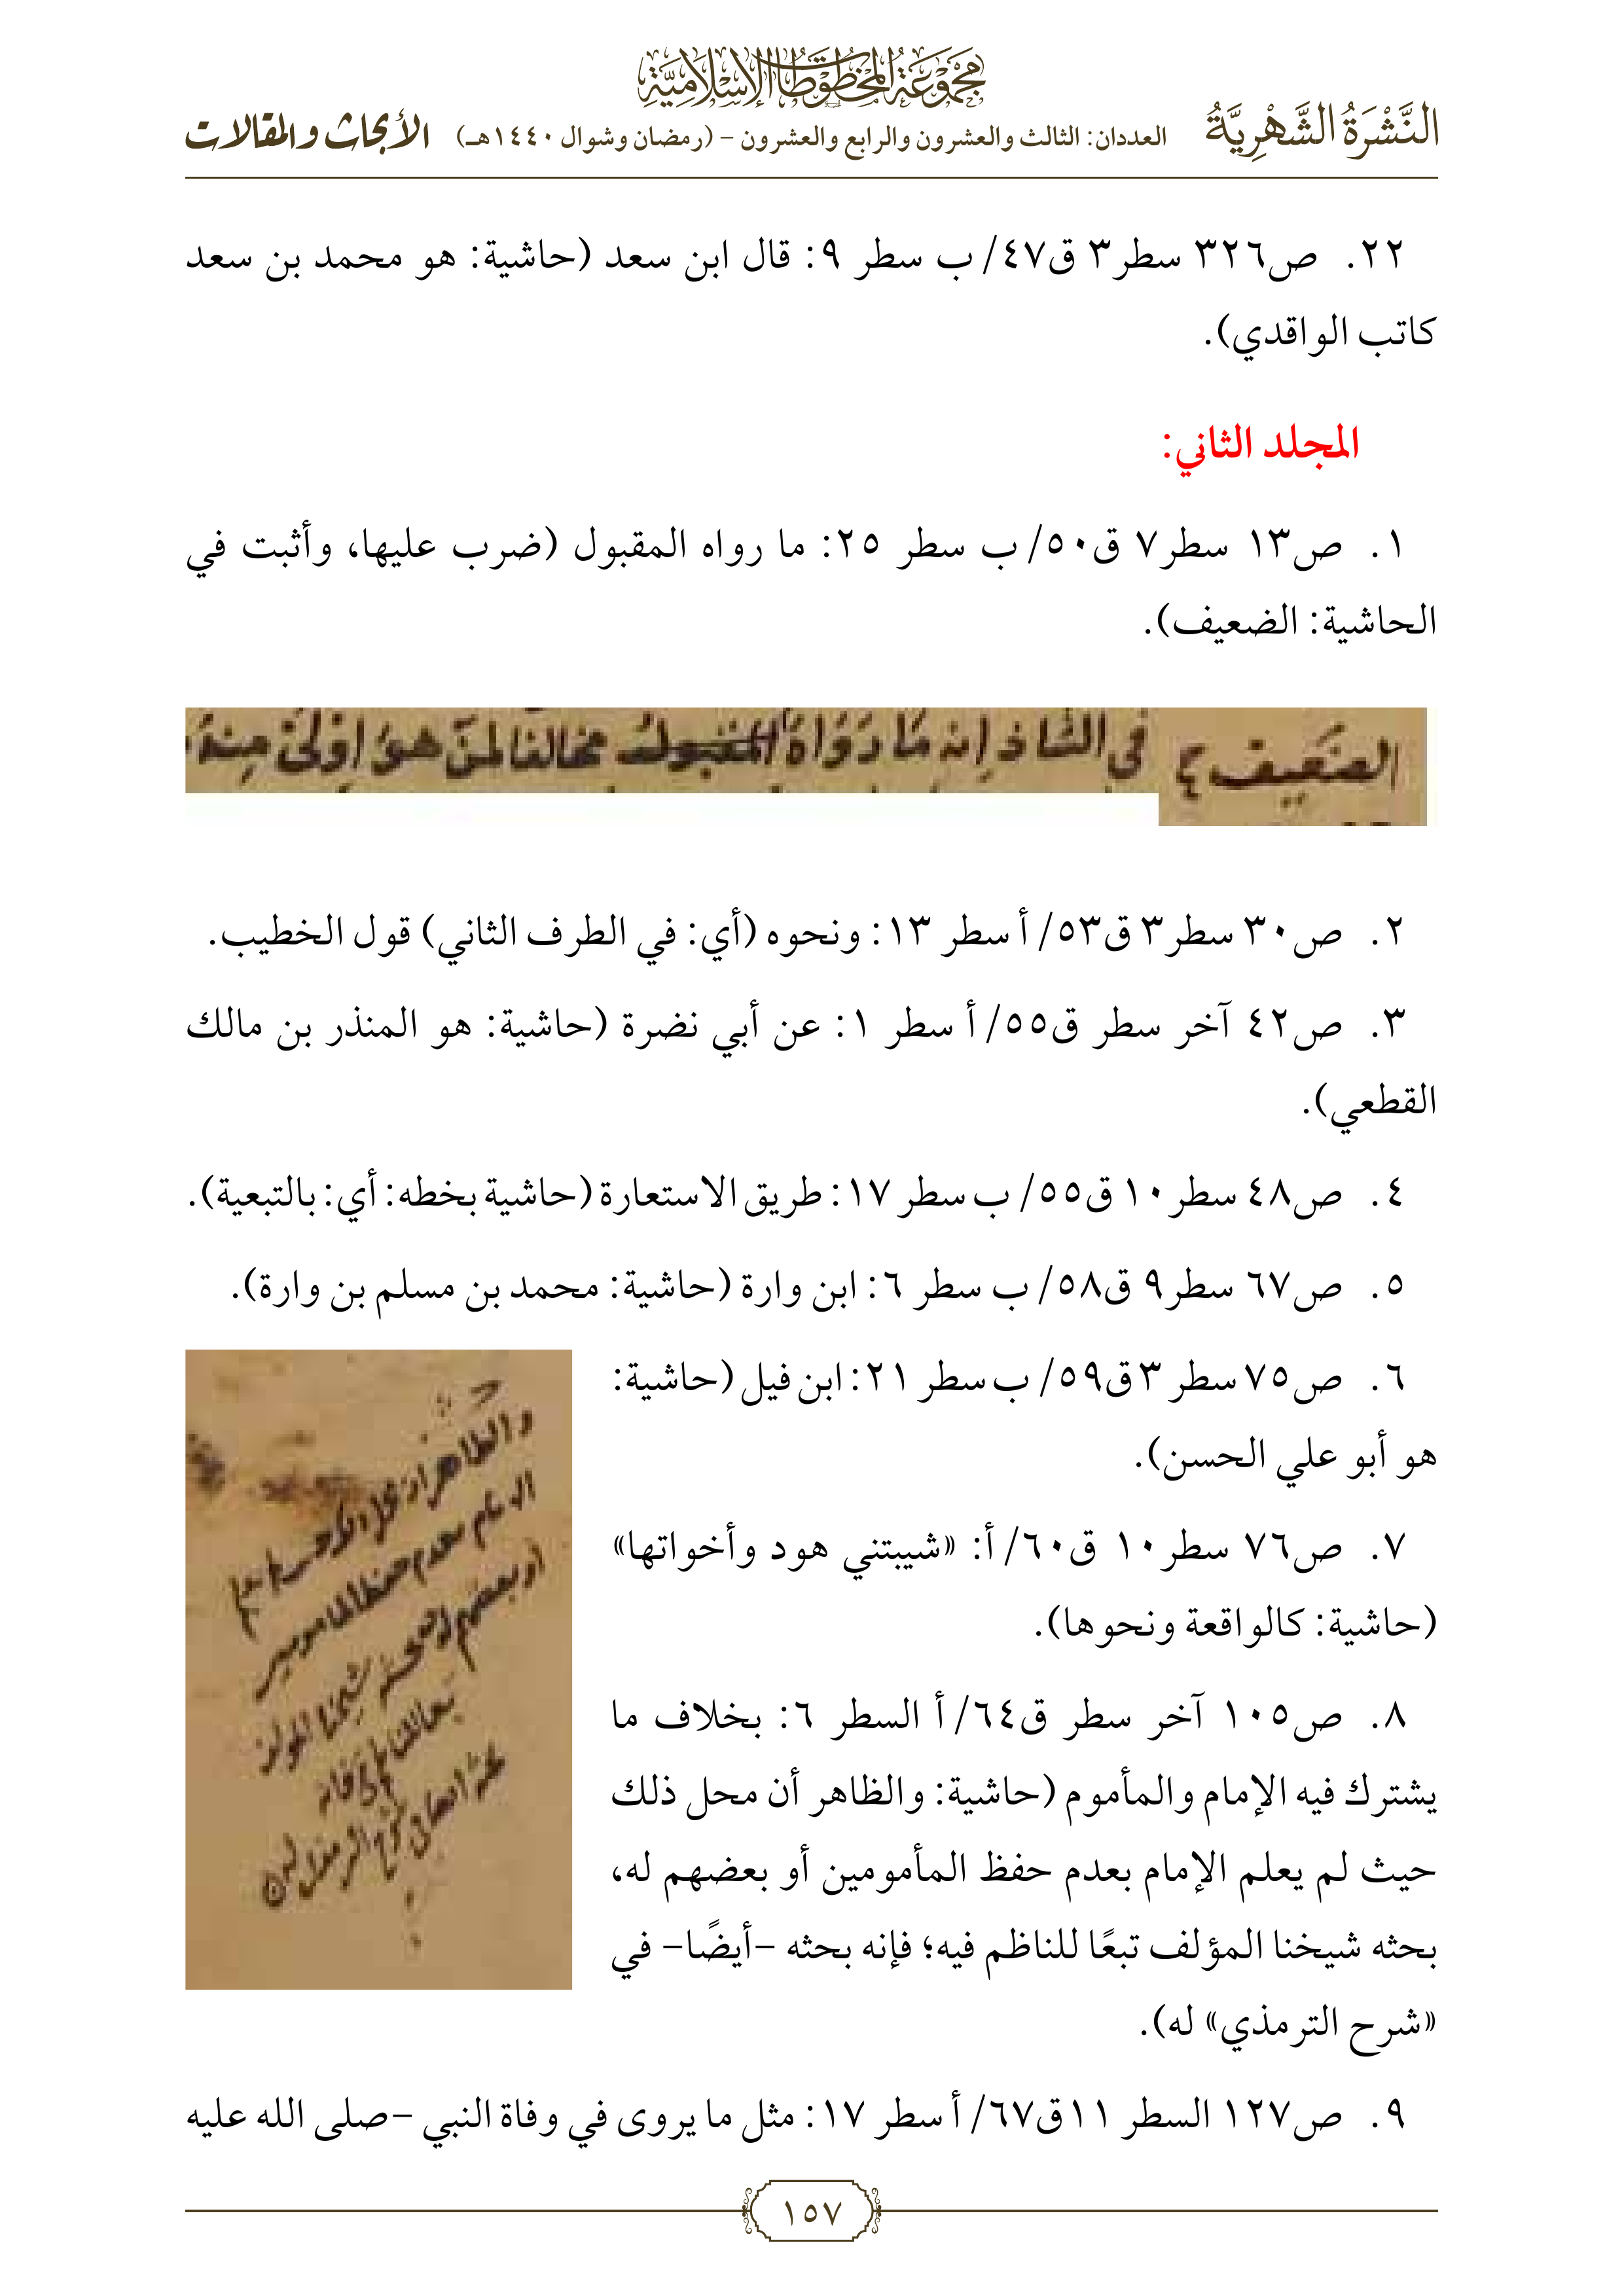 مجموعة المخطوطات الإسلامية
النَّشْرَةُ الشَّهْرِيَّةُ العددان: الثالث والعشرون والرابع والعشرون - (رمضان وشوال ١٤٤٠هـ) الأبحاث والمقالات
٢٢. ص٣٢٦ سطر٣ ق٤٧/ ب سطر ٩: قال ابن سعد (حاشية: هو محمد بن سعد
كاتب الواقدي).
المجلد الثاني:
١. ص١٣ سطر٧ ق٥٠/ ب سطر ٢٥: ما رواه المقبول (ضرب عليها، وأثبت في
الحاشية: الضعيف).
الضعيف في الشاذ إنه ما رواه المقبول مخالفا لمن هو اولى منه
٢. ص٣٠ سطر٣ ق٥٣/ أ سطر ١٣: ونحوه (أي: في الطرف الثاني) قول الخطيب.
٣. ص٤٢ آخر سطر ق٥٥/ أ سطر ١: عن أبي نضرة (حاشية: هو المنذر بن مالك
القطعي).
٤. ص٤٨ سطر١٠ ق٥٥/ ب سطر ١٧: طريق الاستعارة (حاشية بخطه: أي: بالتبعية).
٥. ص٦٧ سطر٩ ق٥٨/ ب سطر ٦: ابن وارة (حاشية: محمد بن مسلم بن وارة).
٦. ص٧٥ سطر ٣ق٥٩/ ب سطر ٢١: ابن فيل (حاشية:
هو أبو علي الحسن).
٧. ص٧٦ سطر١٠ ق٦٠/ أ: «شيبتني هود وأخواتها»
(حاشية: كالواقعة ونحوها).
٨. ص١٠٥ آخر سطر ق٦٤/ أ السطر ٦: بخلاف ما
يشترك فيه الإمام والمأموم (حاشية: والظاهر أن محل ذلك
حيث لم يعلم الإمام بعدم حفظ المأمومين أو بعضهم له،
بحثه شيخنا المؤلف تبعًا للناظم فيه؛ فإنه بحثه -أيضًا- في
«شرح الترمذي» له).
٩. ص١٢٧ السطر ١١ق٦٧/ أ سطر ١٧: مثل ما يروى في وفاة النبي -صلى الله عليه
١٥٧